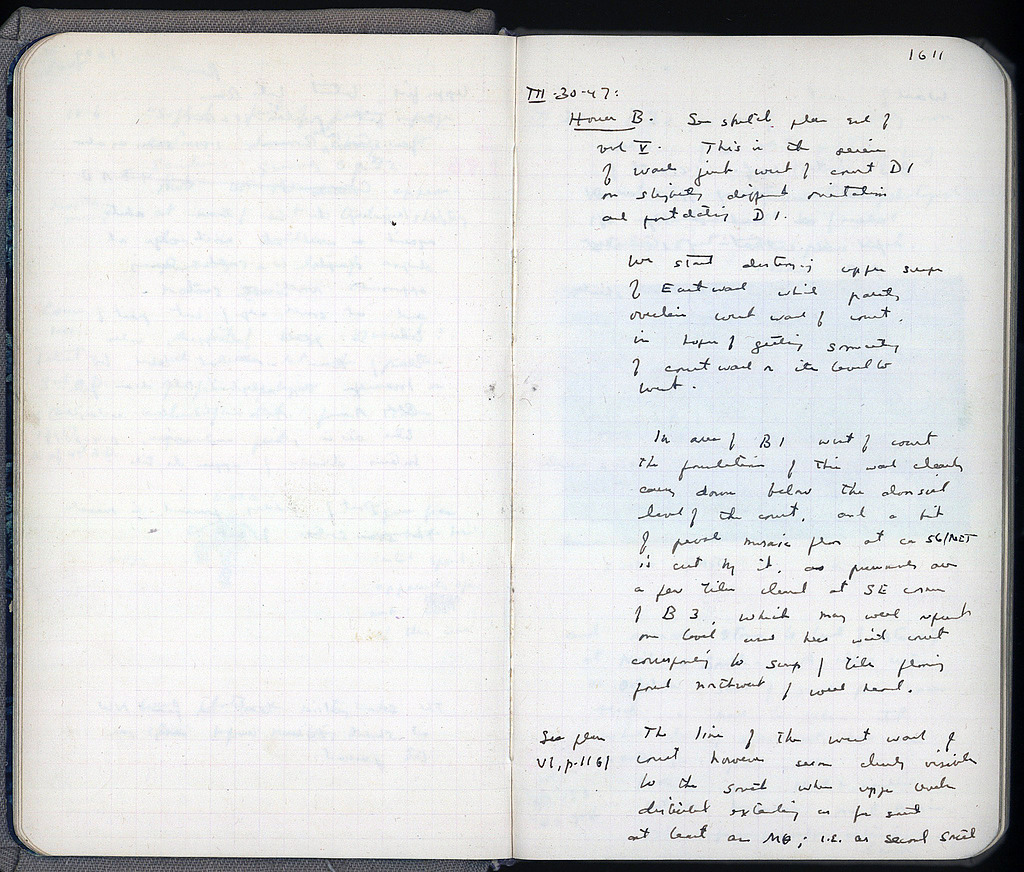 1611
III-30-47:
House B. See sketch plan end of
vol V. This is the series
of walls just west of court D1
on slightly different orientation
and postdating D1.
We start destroying upper
of East wall which partly
overlain west wall of court,
in hope of getting
of court wall or its
west.
In area of B1 west of court
the foundations of this wall clearly
down below the
level of the court, and a bit
of mosaic floor at ca 56/NET
is cut by it, as presumably are
a few tiles at SE corner
of B3, which may well represent
one level west court
corresponding to scrap of tile flooring
found northwest of well head.
See plan
VI, p. 1161
The line of the west wall of
court however seems clearly visible
to the south when upper levels
extending as far south
at least as MΘ; i.e. as second south